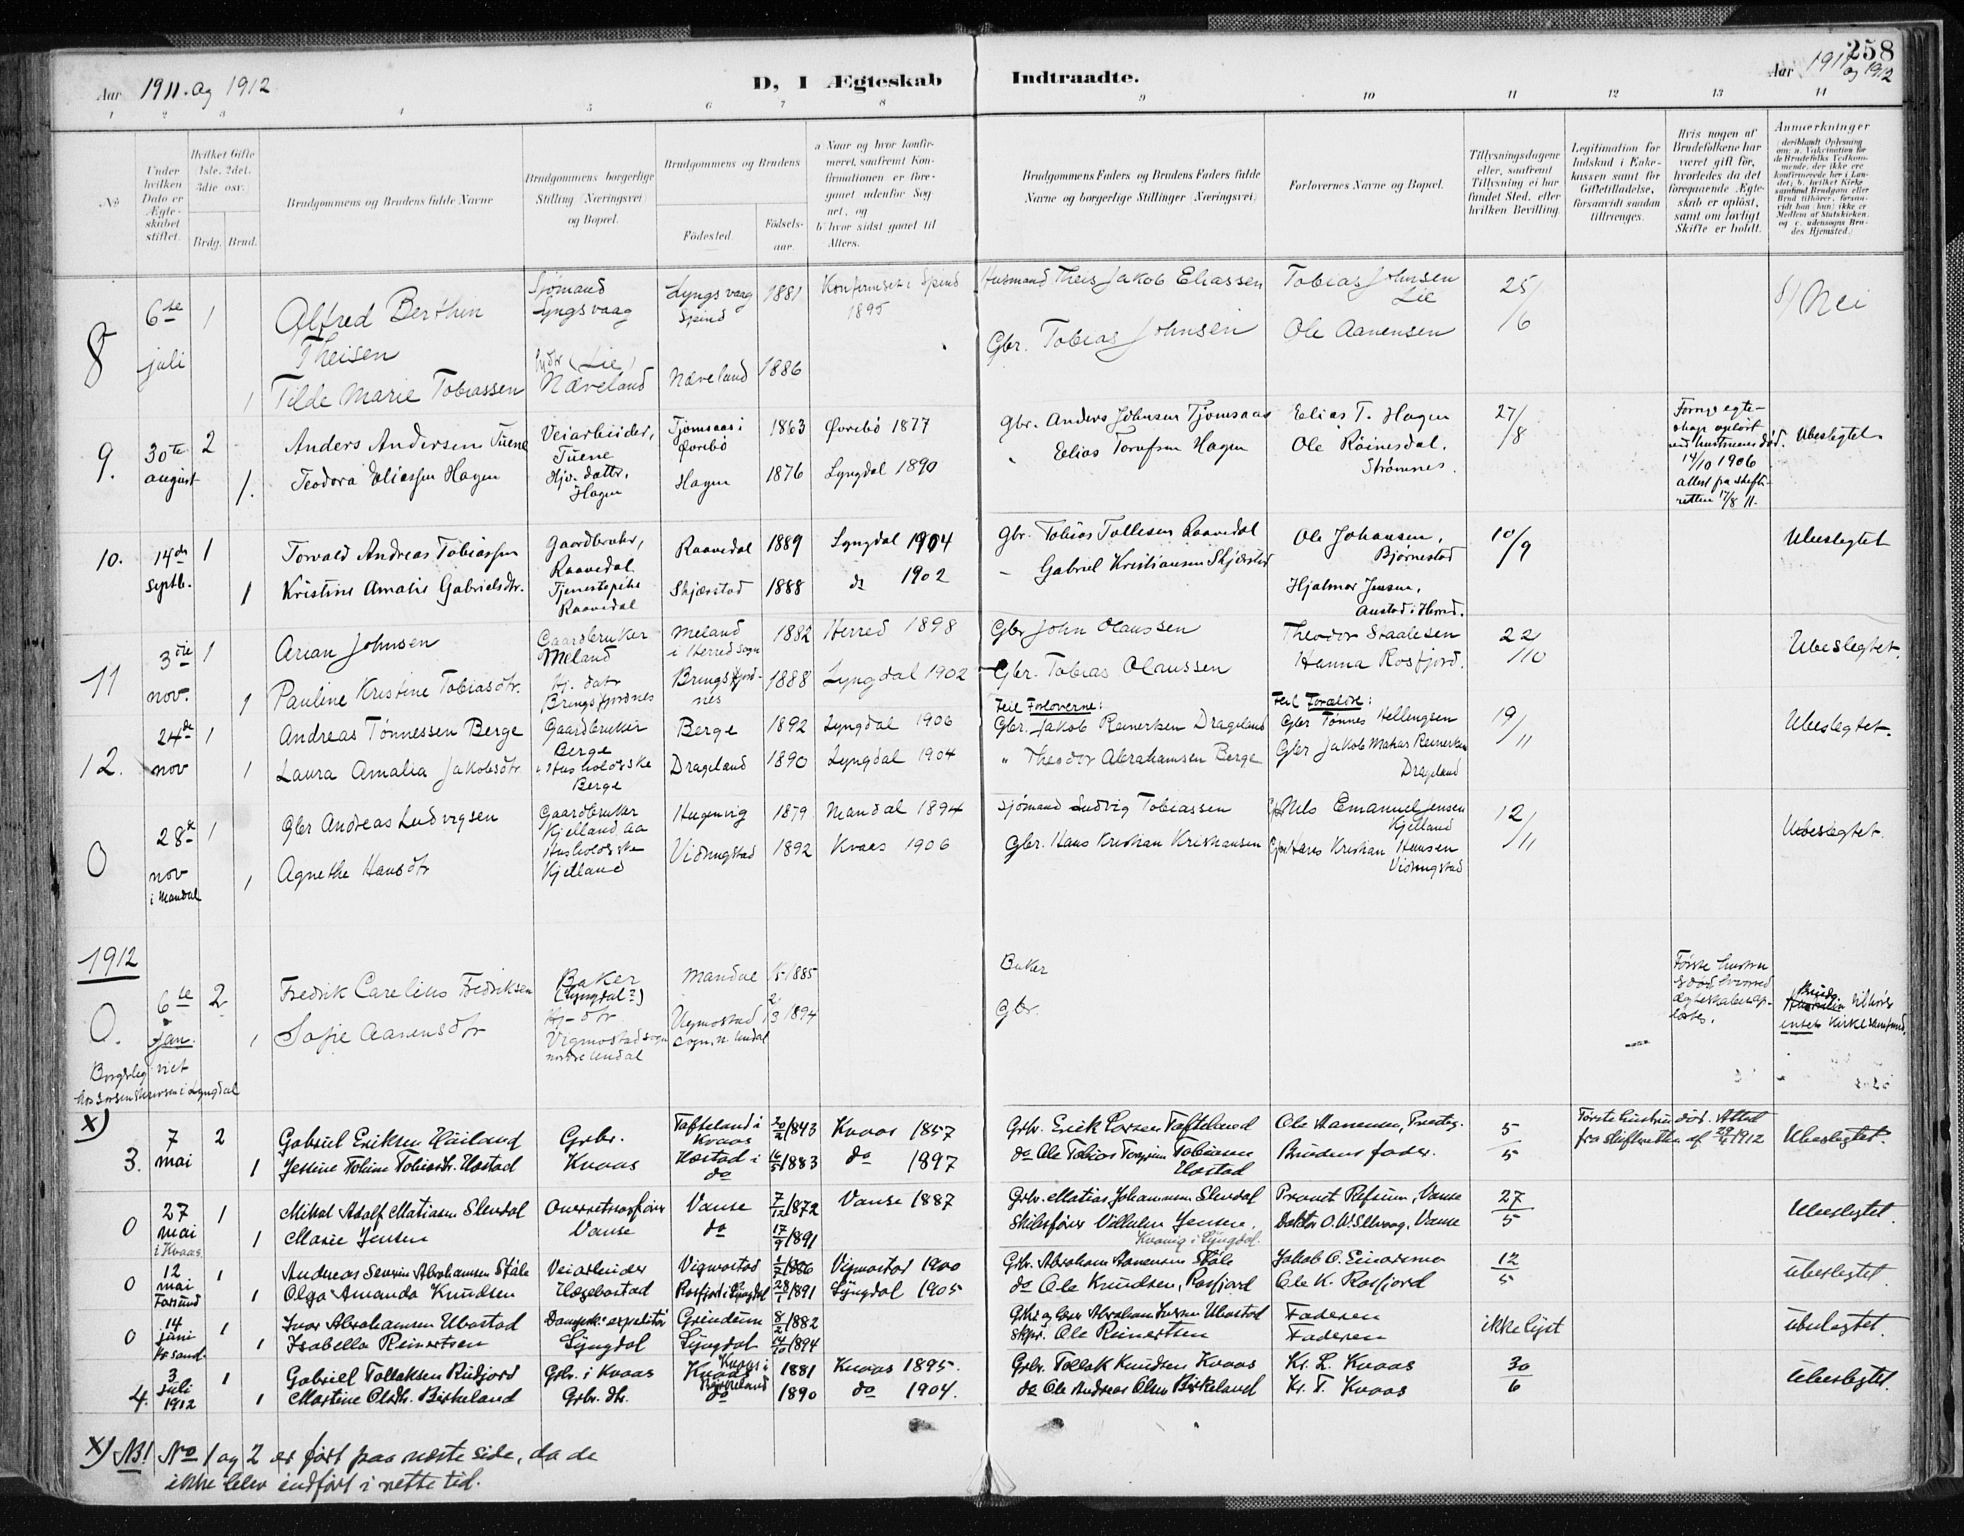 258
Aar 1911. og 1912
D, I Ægteskab Indtraadte.
Aar 1911 og 1912
1 2 3 4 5 6 7 8 9 10 11 12 13 14
No
Under hvilken Dato er Ægteskabet stiftet.
Hvilket Gifte 1ste, 2det, 3die osv.
Brdg. Brud.
Brudgommens og Brudens fulde Navne
Brudgommens borgerlige Stilling (Næringsvei) og Bopæl.
Brudgommens og Brudens
Fødested.
Fødselsaar.
a Naar og hvor konfirmeret, saafremt Konfirmationen er foregaaet udenfor Sognet, og
b hvor sidst gaaet til Alters.
Brudgommens Faders og Brudens Faders fulde Navne og borgerlige Stillinger (Næringsvei)
Forlovernes Navne og Bopæl.
Tillysningsdagene eller, saafremt Tillysning ei har fundet Sted, efter hvilken Bevilling.
Legitimation for Indskud i Enkekassen samt for Giftetilladelse, forsaavidt saadan tiltrænges.
Hvis nogen af Brudefolkene har været gift før, hvorledes da det foregaaende Ægteskab er opløst, samt om lovligt Skifte er holdt.
Anmærkninger
8 6te juli 1 Alfred Berthin Theisen Sjømand Lyngsvaag Lyngsvaag Spind 1881 Konfirmet i Spind 1895 Husmand Theis Jakob Eliassen Tobias Johnsen Lie 25/6 Nei
1 Tilde Marie Tobiassen (Lie) Næveland Næveland 1886 Gbr. Tobias Johnsen Ole Aanensen
9. 30te august 2 Anders Andersen Tuene Veiarbeider, Tuene Tjomsaas i Øvrebö 1863 Øvrebö 1877 Gbr. Anders Johnsen Tjomsaas Eelias T. Hagen 27/8 14/10 1906 17/8 11. Ubeslegtet.
1. Teodora Eliassen Hagen Hjv. datter, Hagen Hagen 1876 Lyngdal 1890 Eelias Torafsen Hagen Ole Röinesdal, Strømnes.
10. 14de septb. 1 Torvald Andreas Tobiassen Gaardbruker, Raavedal Raavedal 1889 Lyngdal 1904 Gbr. Tobias Tollesen Raavedal Ole Johansen, Bjørnestad 10/9 Ubeslegtet
1 Kristine Amalie Gabrielsdtr. Tjenestepike Raavedal Skjærstad 1888 do 1902 Gabriel Kristiansen Skjærstad Hjalmar Jensen, Austad i Herred.
11 3die nov. 1 Arian Johnsen Gaardbruker Meland Meland i Herred sogn 1882 Herred 1898 Gbr John Olaussen Theodor Staalesen 22/10 Ubeslegtet.
1 Pauline Kristine Tobiasdtr. Hj. datr Bringsfjordnes Bringsfjordnes 1888 Lyngdal 1902 Gbr. Tobias Olaussen Hanna Rosfjord.
Feil Forloverne: Feil Forældre:
12. 24de nov 1 Andreas Tønnessen Berge Gaardbruker Berge Berge 1892 Lyngdal 1906 Gbr. Jakob Reinertsen Drageland Gbr Tønnes Hellengsen 19/11 Ubeslegtet.
1 Laura Amalia Jakobsdtr Husholderske Berge Drageland 1890 Lyngdal 1904 " Theodor Abrahamsen Berge Gbr Jakob Mathias Reinertsen Drageland
0 28de nov i Mandal 1 Gbr Andreas Ludvigsen Gaardbruker Kjelland Haugenvig 1879 Mandal 1894 Sjømand Ludvig Tobiassen Nils Emanuel Jensen Kjelland 12/11 Ubeslegtet.
1 Agnethe Hansdtr Husholderske Kjelland Vidringstad 1892 Kvaas 1906 Gbr. Hans Kristian Kristiansen Gbr Hans Kristian Hansen Vidringstad
1912
0. 6te jan. 2 Fredrik Carelius Fredriksen Baker (Lyngdal?) Mandal 1885 Baker Første hustru
1 Sofie Aanensdtr Hj-dtr Vigmostad sogn nordre Undal Vigmostad sogn, n. Undal 1894 Gbr. Kirkesamfund.
Borgerlig viet hos sorenskriveren i Lyngdal
x)
3. 7 mai 2 Gabriel Eriksen Häiland Grbr. Tafteland i Kvaas 20/2 1843 Kvaas 1857 Grbr. Erik Larsen Tafteland Ole Hansen, 5/5 Første hustru död. Attest fra skifteretten af 29/4 1912 Ubeslegtet.
1 Jensine Toline Tobiasdtr. Hastad Kvaas Hastad i do 16/5 1883 do 1897 do Ole Tobias Tobiasen Hastad Brudens fader.
0 27 mai i Kvaas 1 Mikal Adolf Matiasen Slendal Overretssagfører Vanse Vanse 7/12 1872 Vanse 1887 Grbr. Matias Johannesen Slendal Provst Refsum, Vanse 27/5 Ubeslegtet.
1 Marie Jensen do 17/9 1891 Skibsfører Vilhelm Jensen. Kvavig i Lyngdal. Doktor O.W. Ullwaag, Vanse
0 12 mai Farsund 1 Andreas Severin Abrahamsen Støle Veiarbeider Vigmostad 1/7 1886 Vigmostad 1900 Grbr. Abraham Aanensen Støle Jakob O. Einarsmo 12/5 Ubeslegtet.
1 Olga Amanda Knudsen Hægebostad Rosfjord i Lyngdal 28/1 1891 Lyngdal 1905 do Ole Knudsen, Rosfjord Ole K. Rosfjord
0 14 juni Kr.sand 1 Ivar Abrahamsen Ubostad Grindeim 8/2 1882 Faderen ikke lyst Ubeslegtet.
1 Isabella Reinertsen Lyngdal Lyngdal 14/10 1894 Skpr. Ole Reinertsen Faderen
4. 3 juli 1912 1 Gabriel Tollaksen Rudjord Grbr. i Kvaas Kvaas 1881 Kvaas 1895. Grbr. Tollak Knudsen Kvaas Kr. L. Kvaas 30/6 Ubeslegtet.
1 Martine Olsdtr. Birkeland Grbr. dtr. Birkeland i Kvaas do 1890 do 1904. do Ole Andreas Olsen Birkeland Kr. T. Kvaas
x) NB! No 1 og 2 er ført paa næste side, da de
ikke blev indført i rette tid.